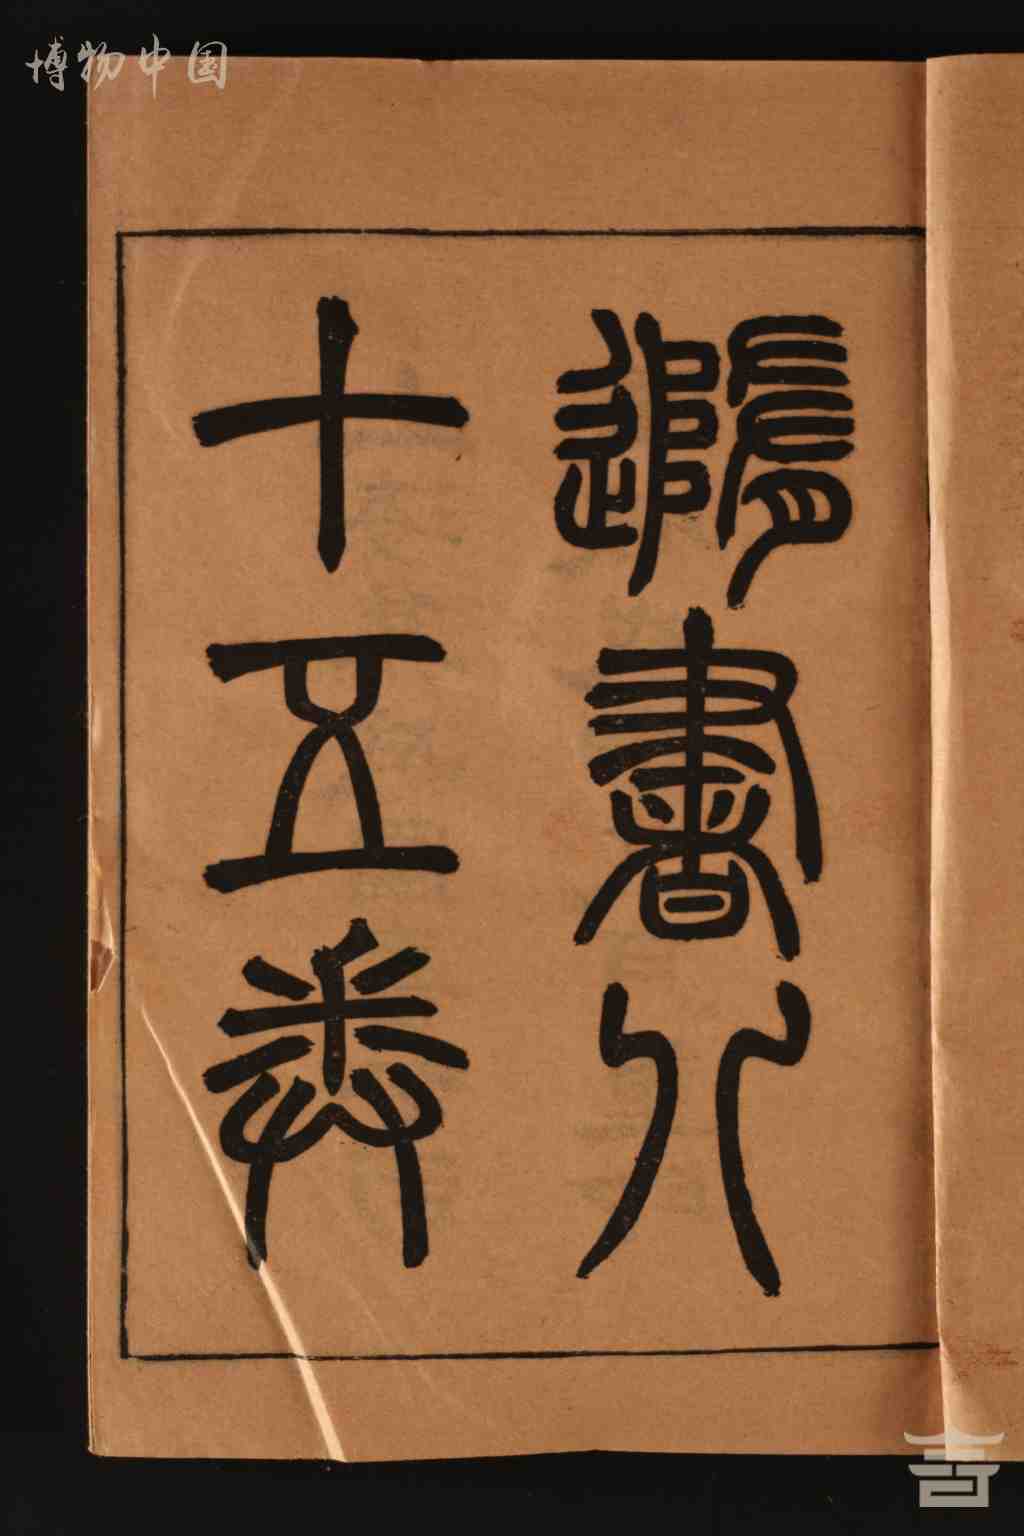 博物中国
隨書八
十五卷